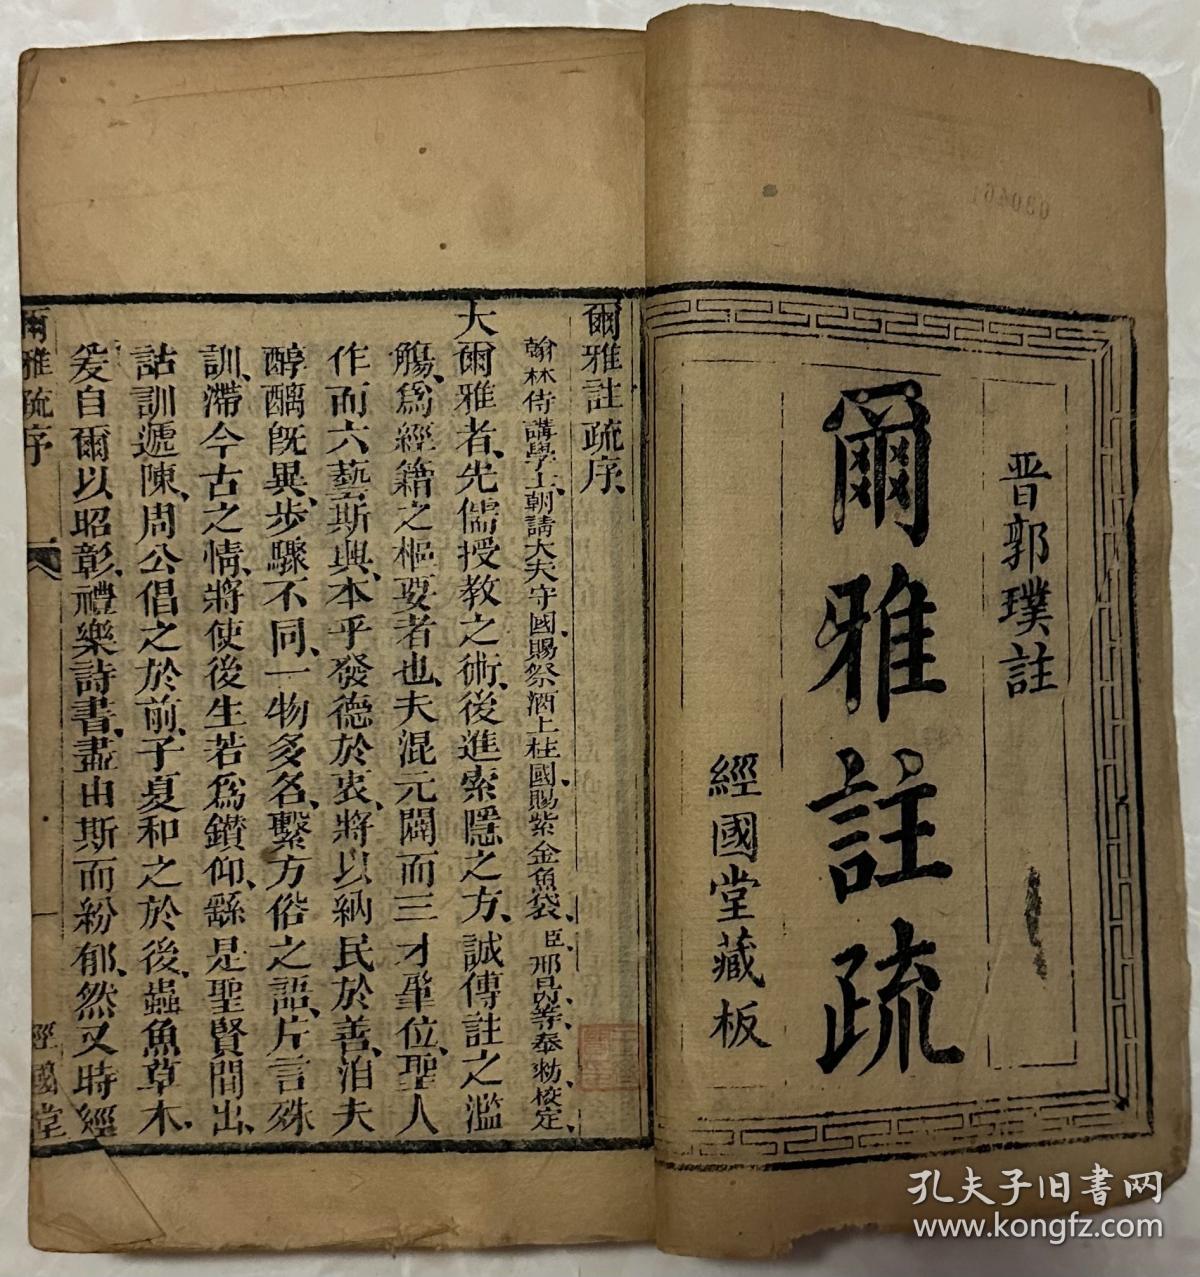 晋郭璞註
爾雅註疏
經國堂藏板
爾雅註疏序
翰林侍講學士朝請大夫守國賜祭酒上柱國賜紫金魚袋臣邢昺等奉勑校定
夫爾雅者先儒授教之術後進索隱之方誠傳註之濫
觴爲經籍之樞要者也夫混元闢而三才肇位聖人
作而六藝斯興本乎發德於衷將以納民於善洎夫
醇醨既異步驟不同一物多名繫方俗之語片言殊
訓滯今古之情將使後生若爲鑽仰繇是聖賢間出
詁訓遞陳周公倡之於前子夏和之於後蟲魚草木
爰自爾以昭彰禮樂詩書盡由斯而紛郁然又時經
爾雅疏序
一
經國堂
030461
孔夫子旧书网
www.kongfz.com